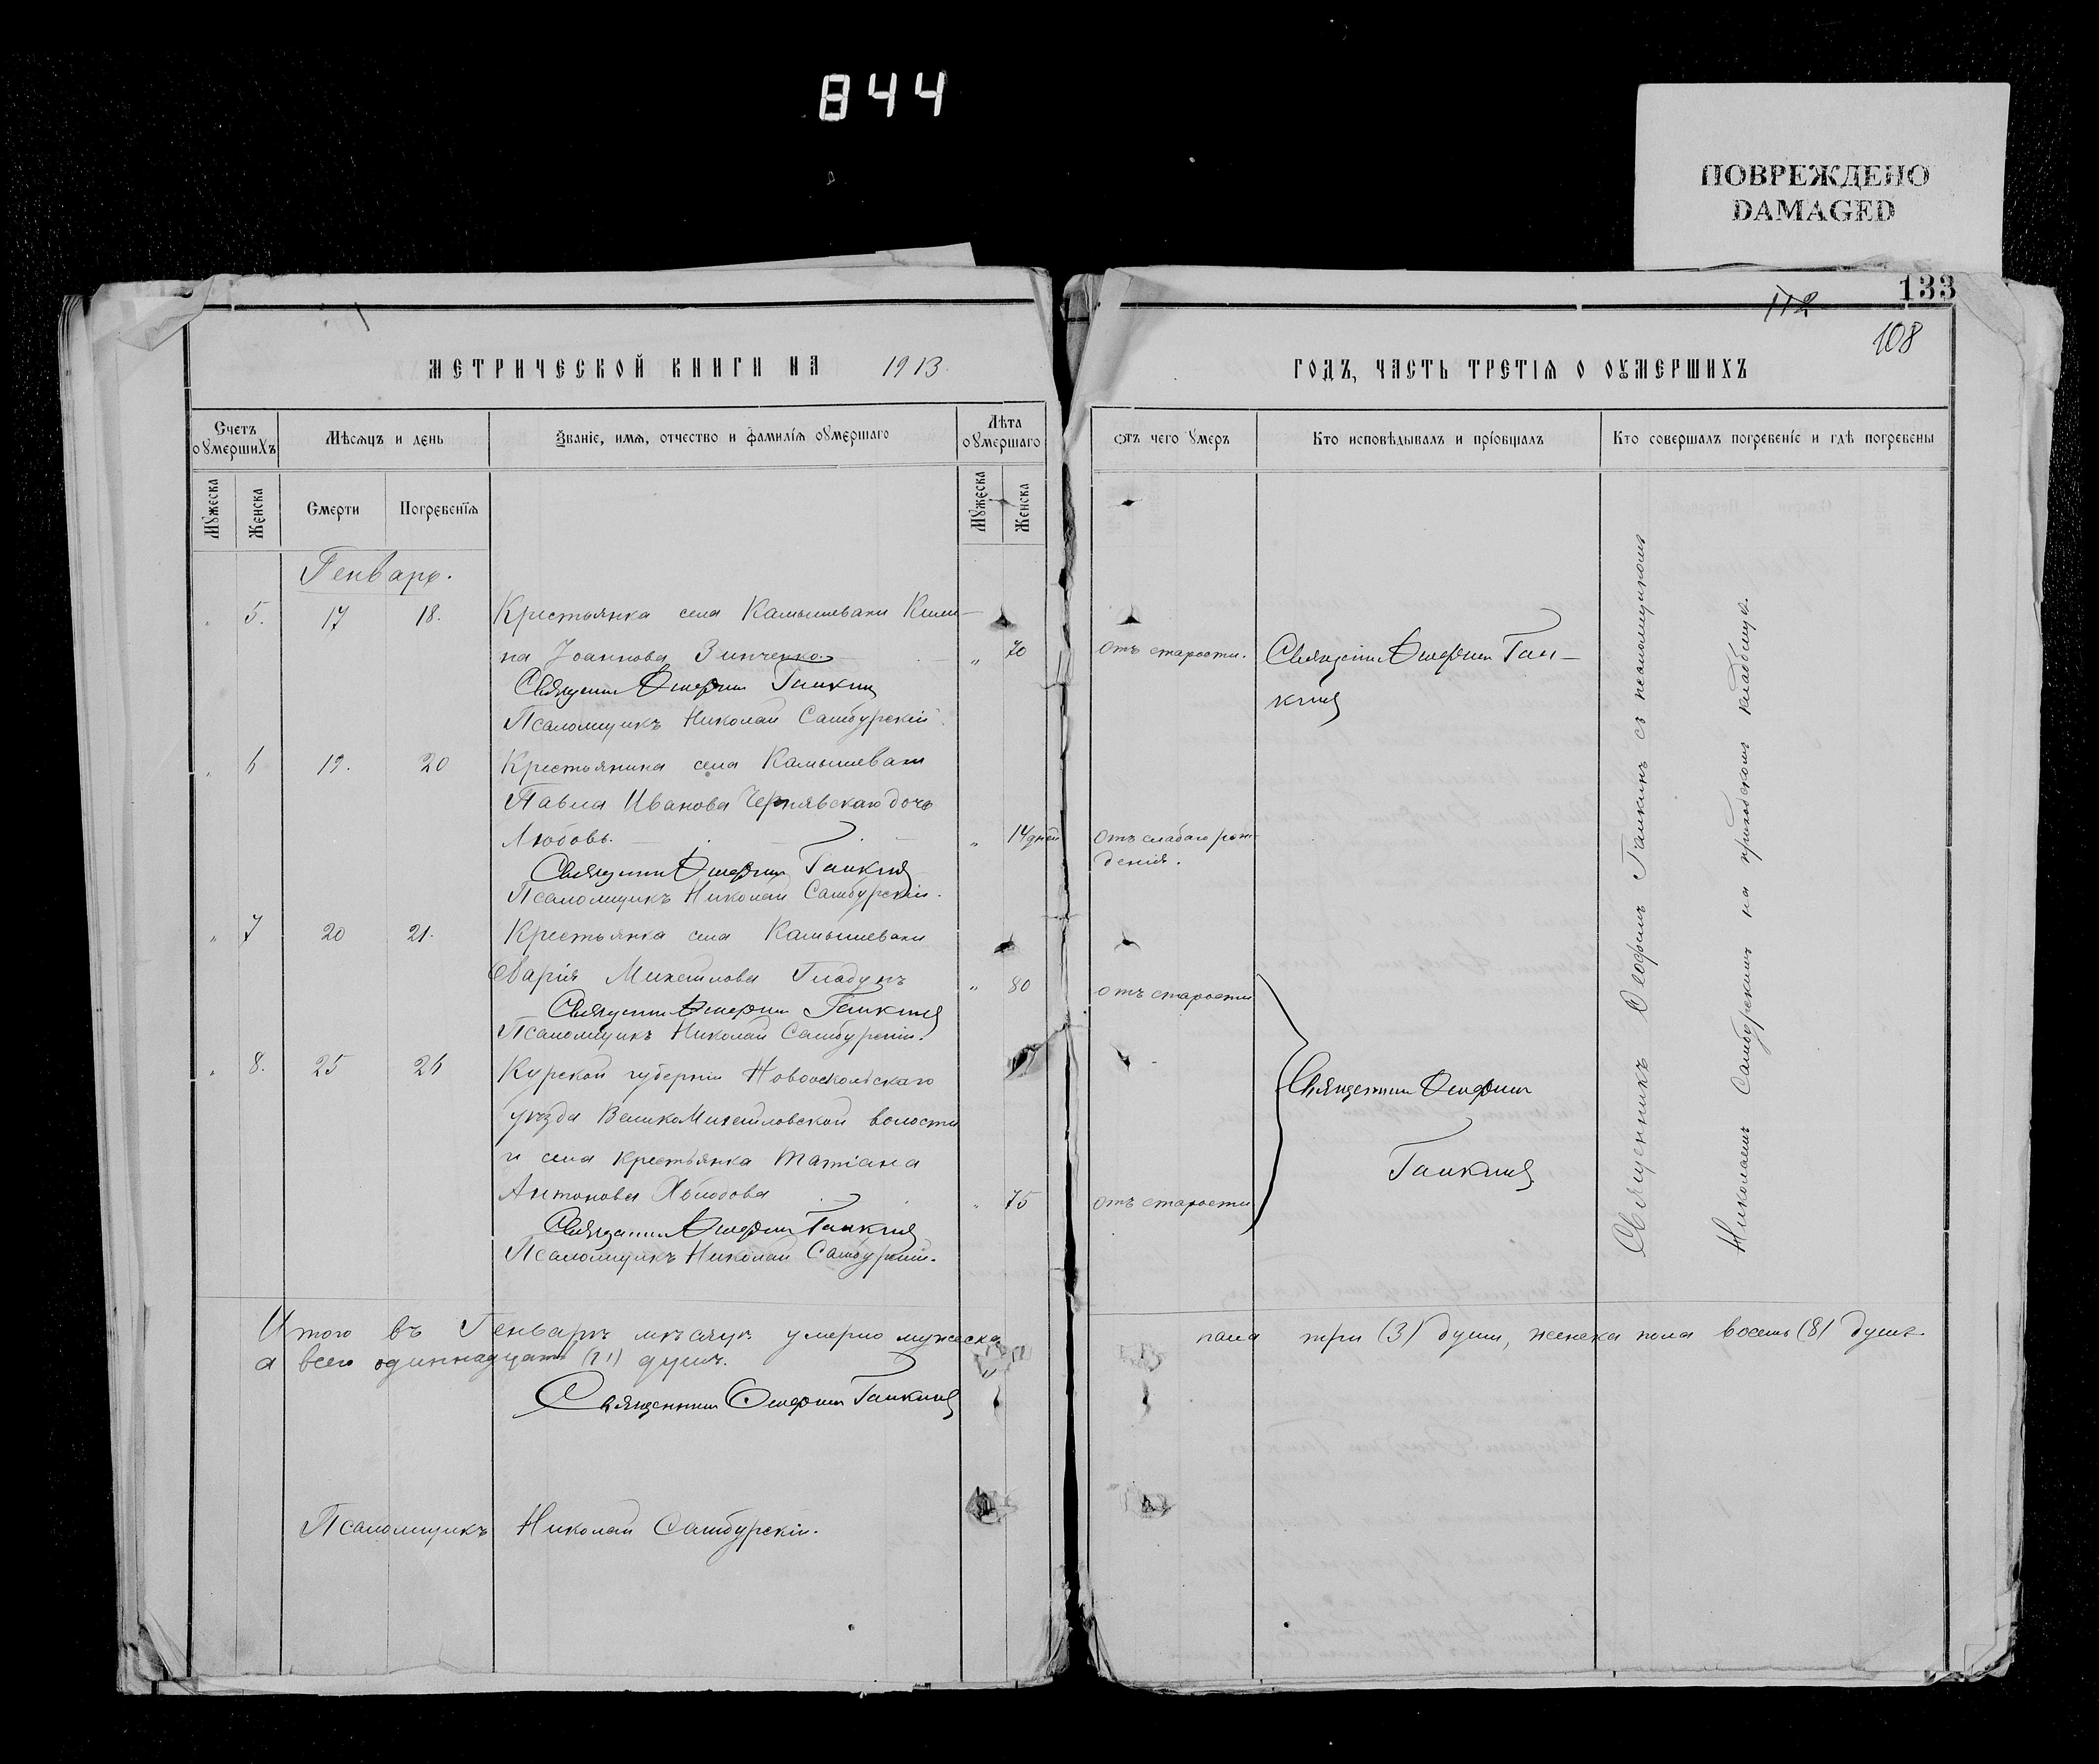 844
ПОВРЕЖДЕНО
DAMAGED
133
112
108
МЕТРИЧЕСКОЙ КНИГИ НА 1913
ГОДЪ, ЧАСТЬ ТРЕТІѦ О ОУМЕРШИХЪ
Счетъ оумершихъ
Мѣсяцъ и день
Званіе, имя, отчество и фамилія оумершаго
Лѣта оумершаго
отъ чего умеръ
Кто исповѣдывалъ и пріобщалъ
Кто совершалъ погребеніе и гдѣ погребены
Мужеска
Женска
Смерти
Погребенія
Мужеска
Женска
Генварь.
" 5. 17 18. Крестьянка села Камышевахи
на Іоаннова Зинченко. " 70 отъ старости. Священникъ Ѳеофилъ Гап-
кинъ
Священникъ Ѳеофилъ Гапкинъ
Псаломщикъ Николай Самбурскій.
" 6 19. 20 Крестьянина села Камышевахи
Павла Иванова Чернявскаго дочь
Любовь. " 14 дней отъ слабаго рож-
денія.
Священникъ Ѳеофилъ Гапкинъ
Псаломщикъ Николай Самбурскій.
" 7 20 21. Крестьянка села Камышевахи
Марія Михайлова Гладунъ " 80 отъ старости
Священникъ Ѳеофилъ Гапкинъ
Псаломщикъ Николай Самбурскій.
" 8. 25 26 Курской губерніи Новооскольскаго
уѣзда ВеликоМихайловской волости
и села крестьянка Татіана
Антонова " 75 отъ старости
Священникъ Ѳеофилъ
Гапкинъ
Священникъ Ѳеофилъ Гапкинъ
Псаломщикъ Николай Самбурскій.
Священникъ Ѳеофилъ Гапкинъ съ псаломщикомъ
Николаемъ Самбурскимъ на приходскомъ кладбищѣ.
Итого въ Генварѣ мѣсяцѣ умерло мужеска пола три (3) души, женска пола восемь (8) душъ.
а всего одиннадцать (11) душъ.
Священникъ Ѳеофилъ Гапкинъ
Псаломщикъ Николай Самбурскій.